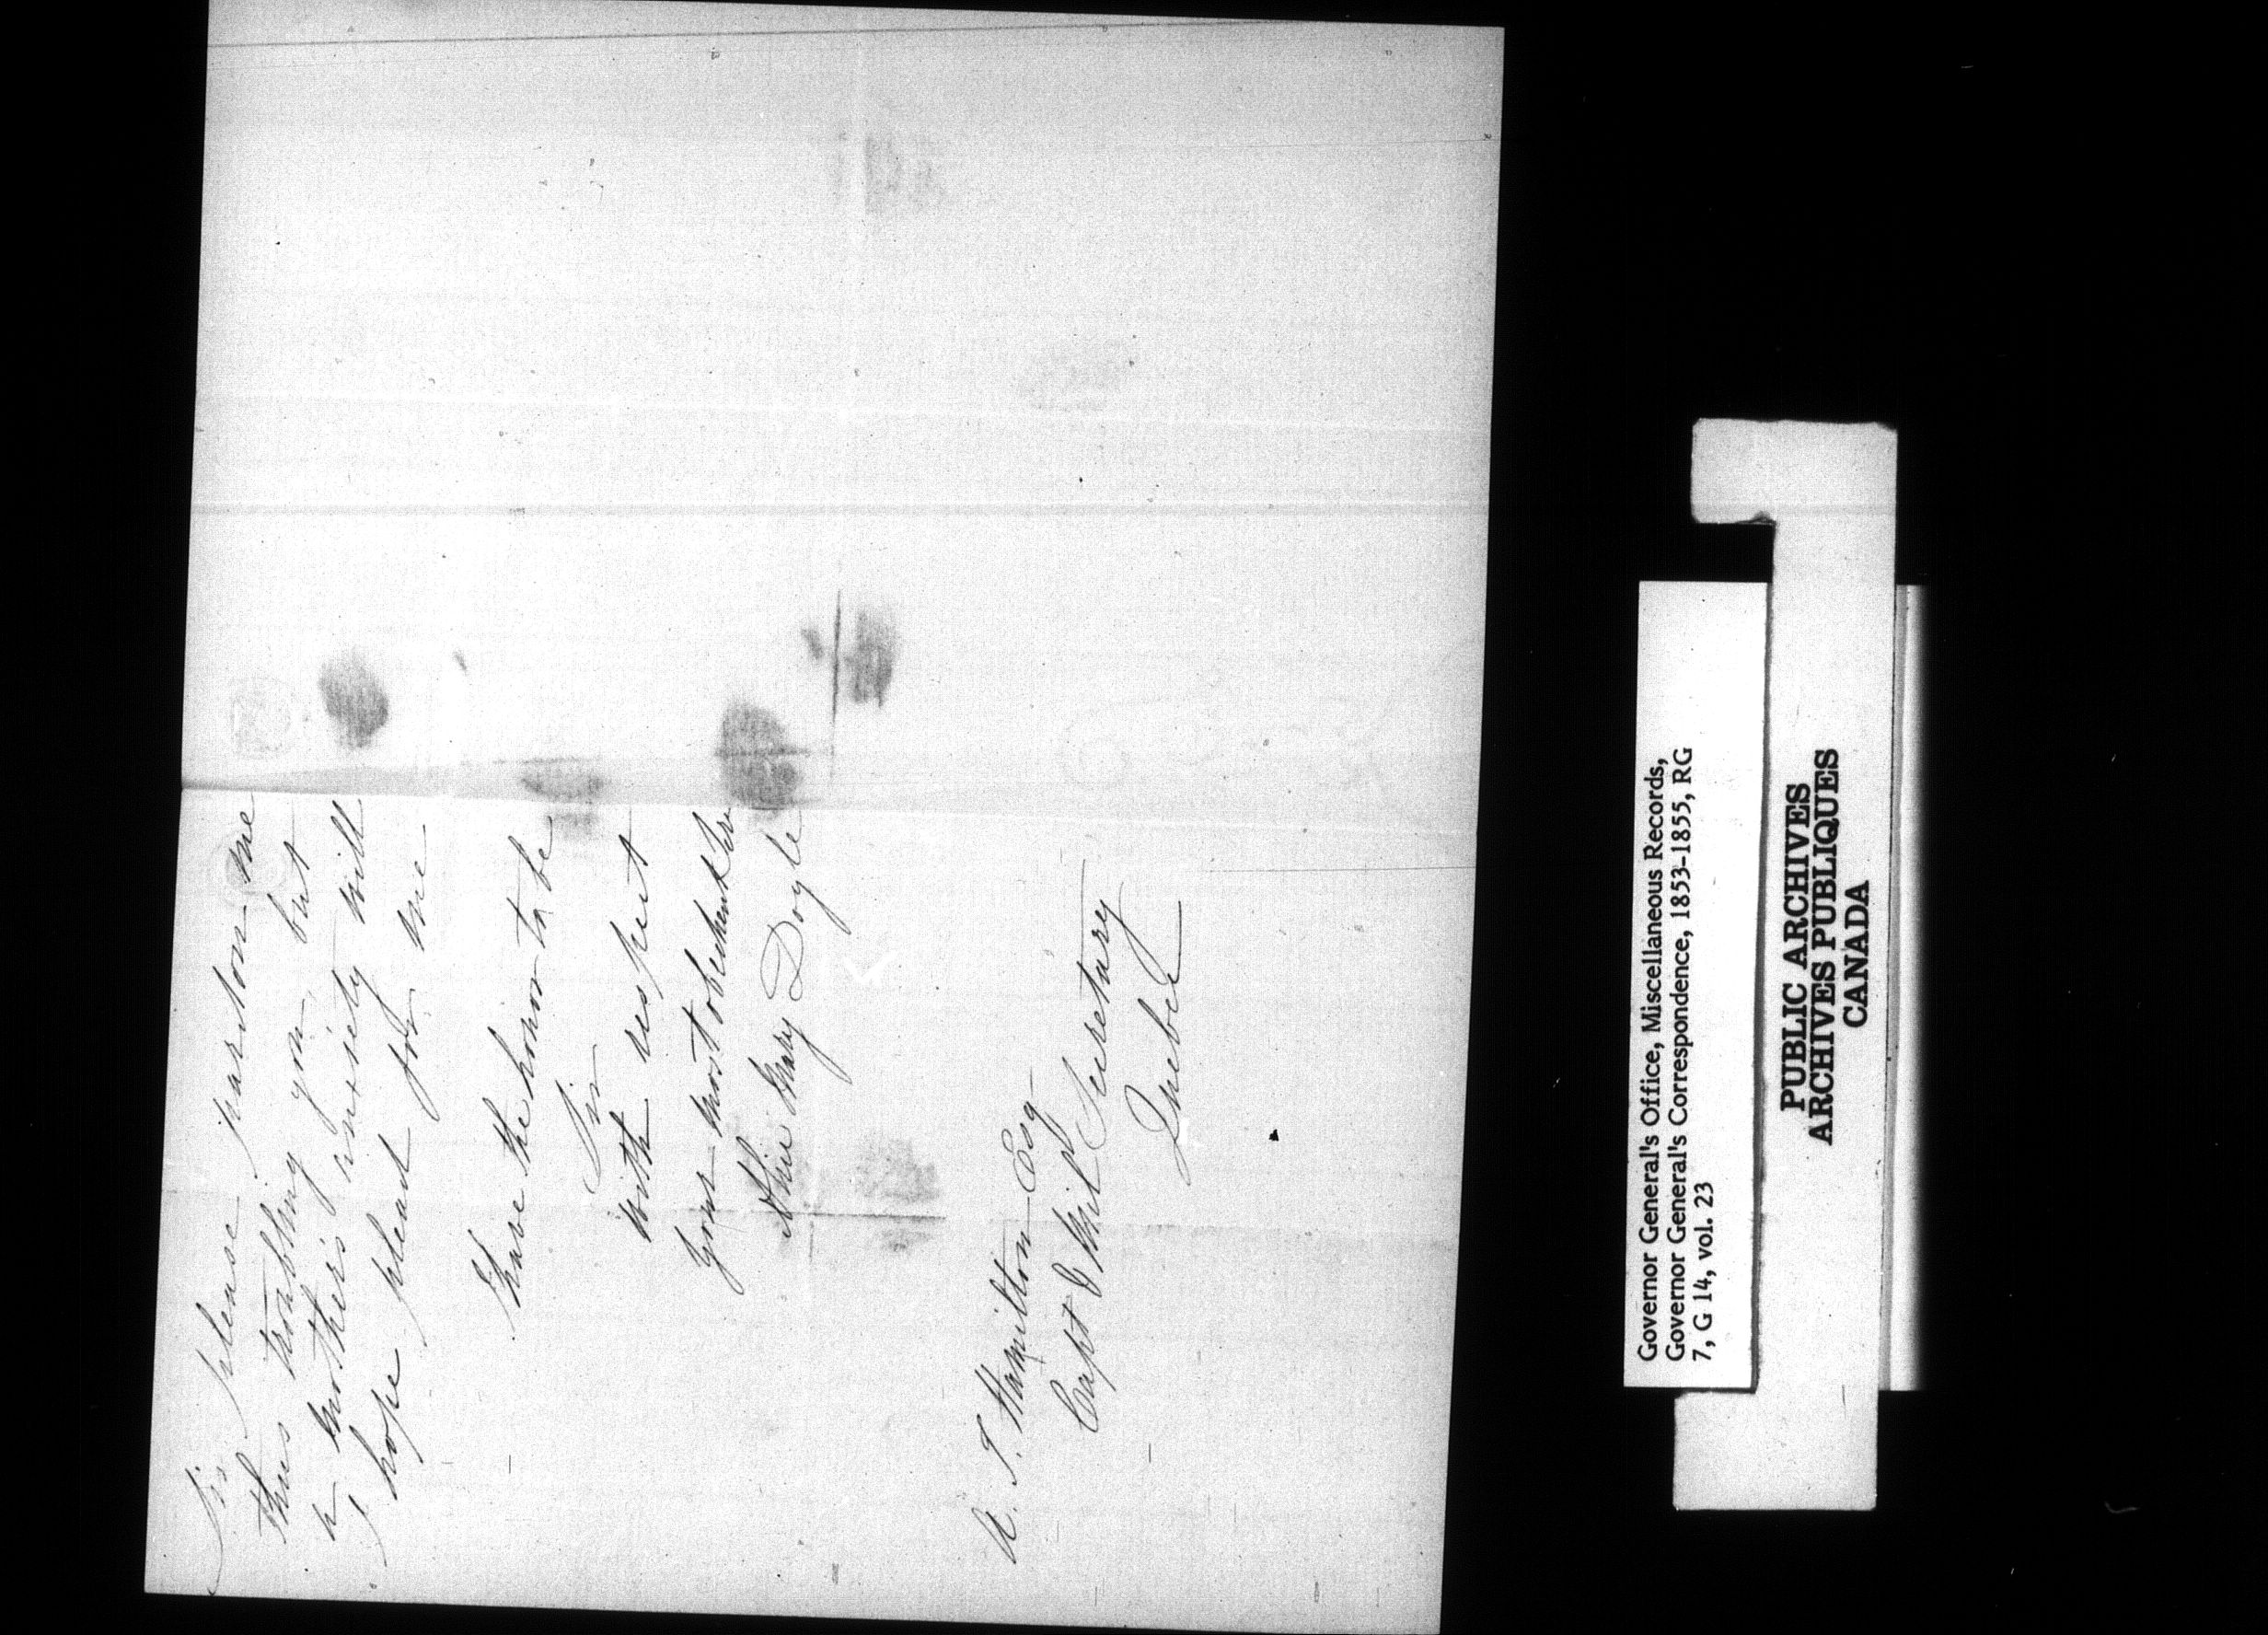 Sir please pardon me
thus troubling you, but
a mother's anxiety will
I hope plead for me
I have the honor to be
Sir
with respect
your most obedient Ser
Mary Doyle
A. T. Hamilton Esq
Capt & Mil Secretary
Quebec
Governor General's Office, Miscellaneous Records,
Governor General's Correspondence, 1853-1855, RG
7, G 14, vol. 23
PUBLIC ARCHIVES
ARCHIVES PUBLIQUES
CANADA